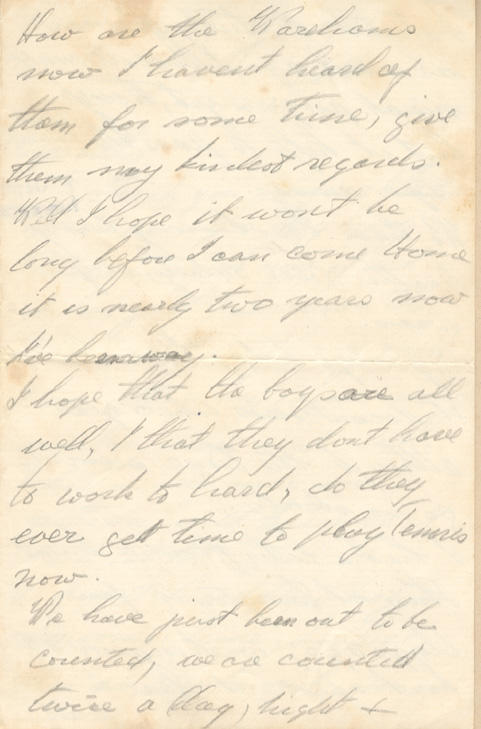 How are the Warehams
now I havent heard of
them for some time, give
them my kindest regards.
Well I hope it wont be
long before I can come Home
it is nearly two years now
I've been away.
I hope that the boys are all
well, & that they dont have
to work to hard, do they
ever get time to play Tennis
now.
We have just been out to be
counted, we are counted
twice a day, night &